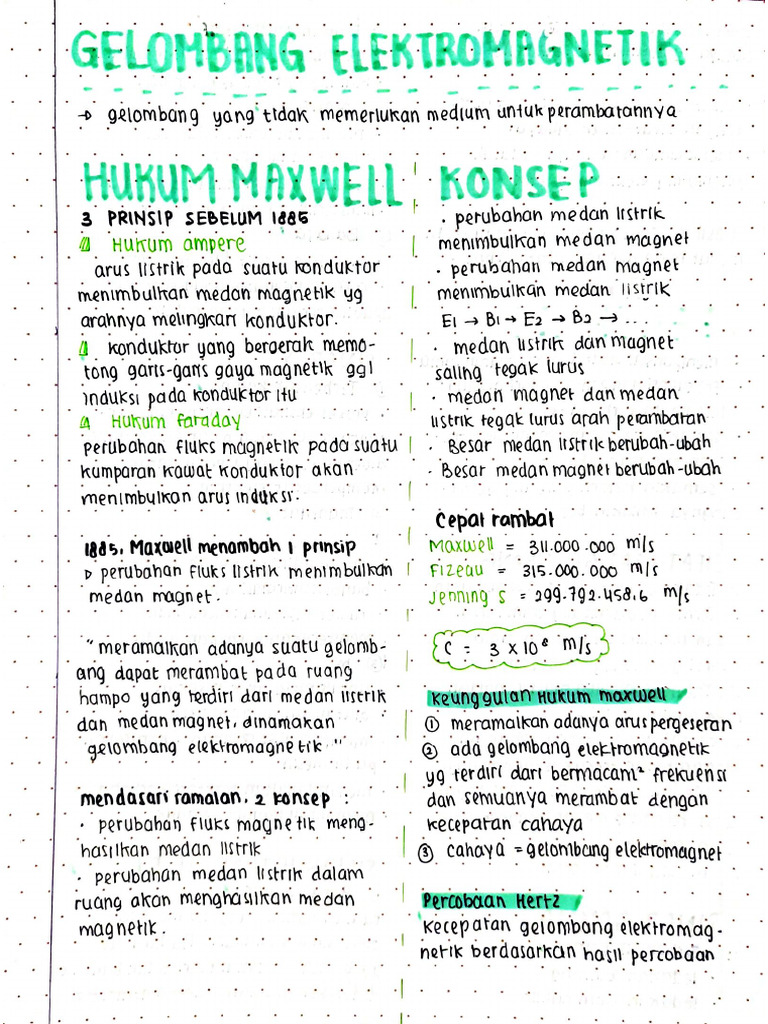 GELOMBANG ELEKTROMAGNETIK
→ gelombang yang tidak memerlukan medium untuk perambatannya
HUKUM MAXWELL
3 PRINSIP SEBELUM 1885
Hukum ampere
arus listrik pada suatu konduktor
menimbulkan medan magnetik yg
arahnya melingkari konduktor.
konduktor yang bergerak memo-
tong garis-garis gaya magnetik ggl
induksi pada konduktor itu
Hukum faraday
perubahan fluks magnetik pada suatu
kumparan kawat konduktor akan
menimbulkan arus induksi.
1885, Maxwell menambah 1 prinsip
▷ perubahan fluks listrik menimbulkan
medan magnet.
"meramalkan adanya suatu gelomb-
ang dapat merambat pada ruang
hampo yang terdiri dari medan listrik
dan medan magnet, dinamakan
gelombang elektromagnetik"
mendasari ramalan, 2 konsep :
· perubahan fluks magnetik meng-
hasilkan medan listrik
· perubahan medan listrik dalam
ruang akan menghasilkan medan
magnetik.
KONSEP
· perubahan medan listrik
menimbulkan medan magnet
· perubahan medan magnet
menimbulkan medan listrik
E1 → B1 → E2 → B2 → ....
· medan listrik dan magnet
saling tegak lurus
· medan magnet dan medan
listrik tegak lurus arah perambatan
· Besar medan listrik berubah-ubah
· Besar medan magnet berubah-ubah
Cepat rambat
Maxwell = 311.000.000 m/s
Fizeau = 315.000.000 m/s
Jenning's = 299.792.458,6 m/s
C = 3 x 10⁸ m/s
Keunggulan Hukum maxwell
① meramalkan adanya arus pergeseran
② ada gelombang elektromagnetik
yg terdiri dari bermacam² frekuensi
dan semuanya merambat dengan
kecepatan cahaya
③ cahaya = gelombang elektromagnet
Percobaan Hertz
kecepatan gelombang elektromag-
netik berdasarkan hasil percobaan